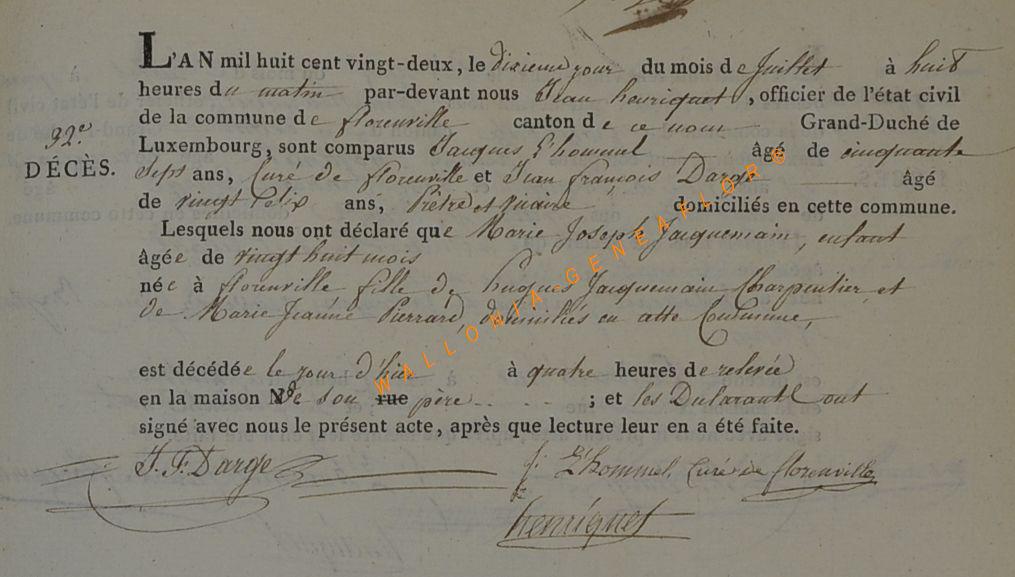 L'AN mil huit cent vingt-deux, le dixieme jour du mois de Juillet à huit
heures du matin par-devant nous Jean henriquet, officier de l'état civil
de la commune de florenville canton de ce nom Grand-Duché de
32e
DÉCÈS.
Luxembourg, sont comparus Jacques L'hommel âgé de cinquante
Sept ans, Curé de florenville et Jean françois Darge âgé
de vingt ans, Prêtre et domiciliés en cette commune.
Lesquels nous ont déclaré que Marie Joseph Jacquemain, enfant
âgée de vingt huit mois
née à florenville fille de hugues Jacquemain Charpentier et
de Marie Jeanne Pierrard, domiciliés en cette Commune,
est décédée le jour d'hier à quatre heures de relevée
en la maison de son rue père ; et les Déclarants ont
signé avec nous le présent acte, après que lecture leur en a été faite.
J. F. Darge J. L'hommel, Curé de florenville
henriquet
WALLONIA GENEAFLOR©